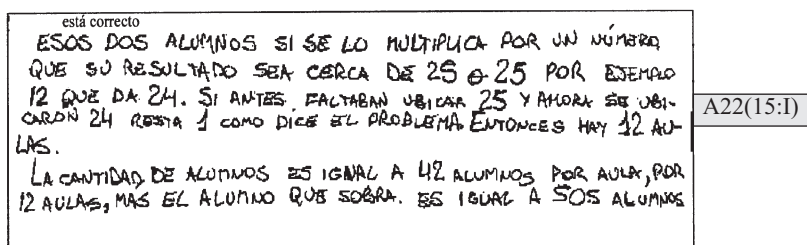 está correcto
ESOS DOS ALUMNOS SI SE LO MULTIPLICA POR UN NÚMERO
QUE SU RESULTADO SEA CERCA DE 25 o 25 POR EJEMPLO
12 QUE DA 24. SI ANTES FALTABAN UBICAR 25 Y AHORA SE UBI-
CARON 24 RESTA 1 COMO DICE EL PROBLEMA. ENTONCES HAY 12 AU-
LAS.
A22(15:I)
LA CANTIDAD DE ALUMNOS ES IGUAL A 42 ALUMNOS POR AULA, POR
12 AULAS, MAS EL ALUMNO QUE SOBRA. ES IGUAL A 505 ALUMNOS